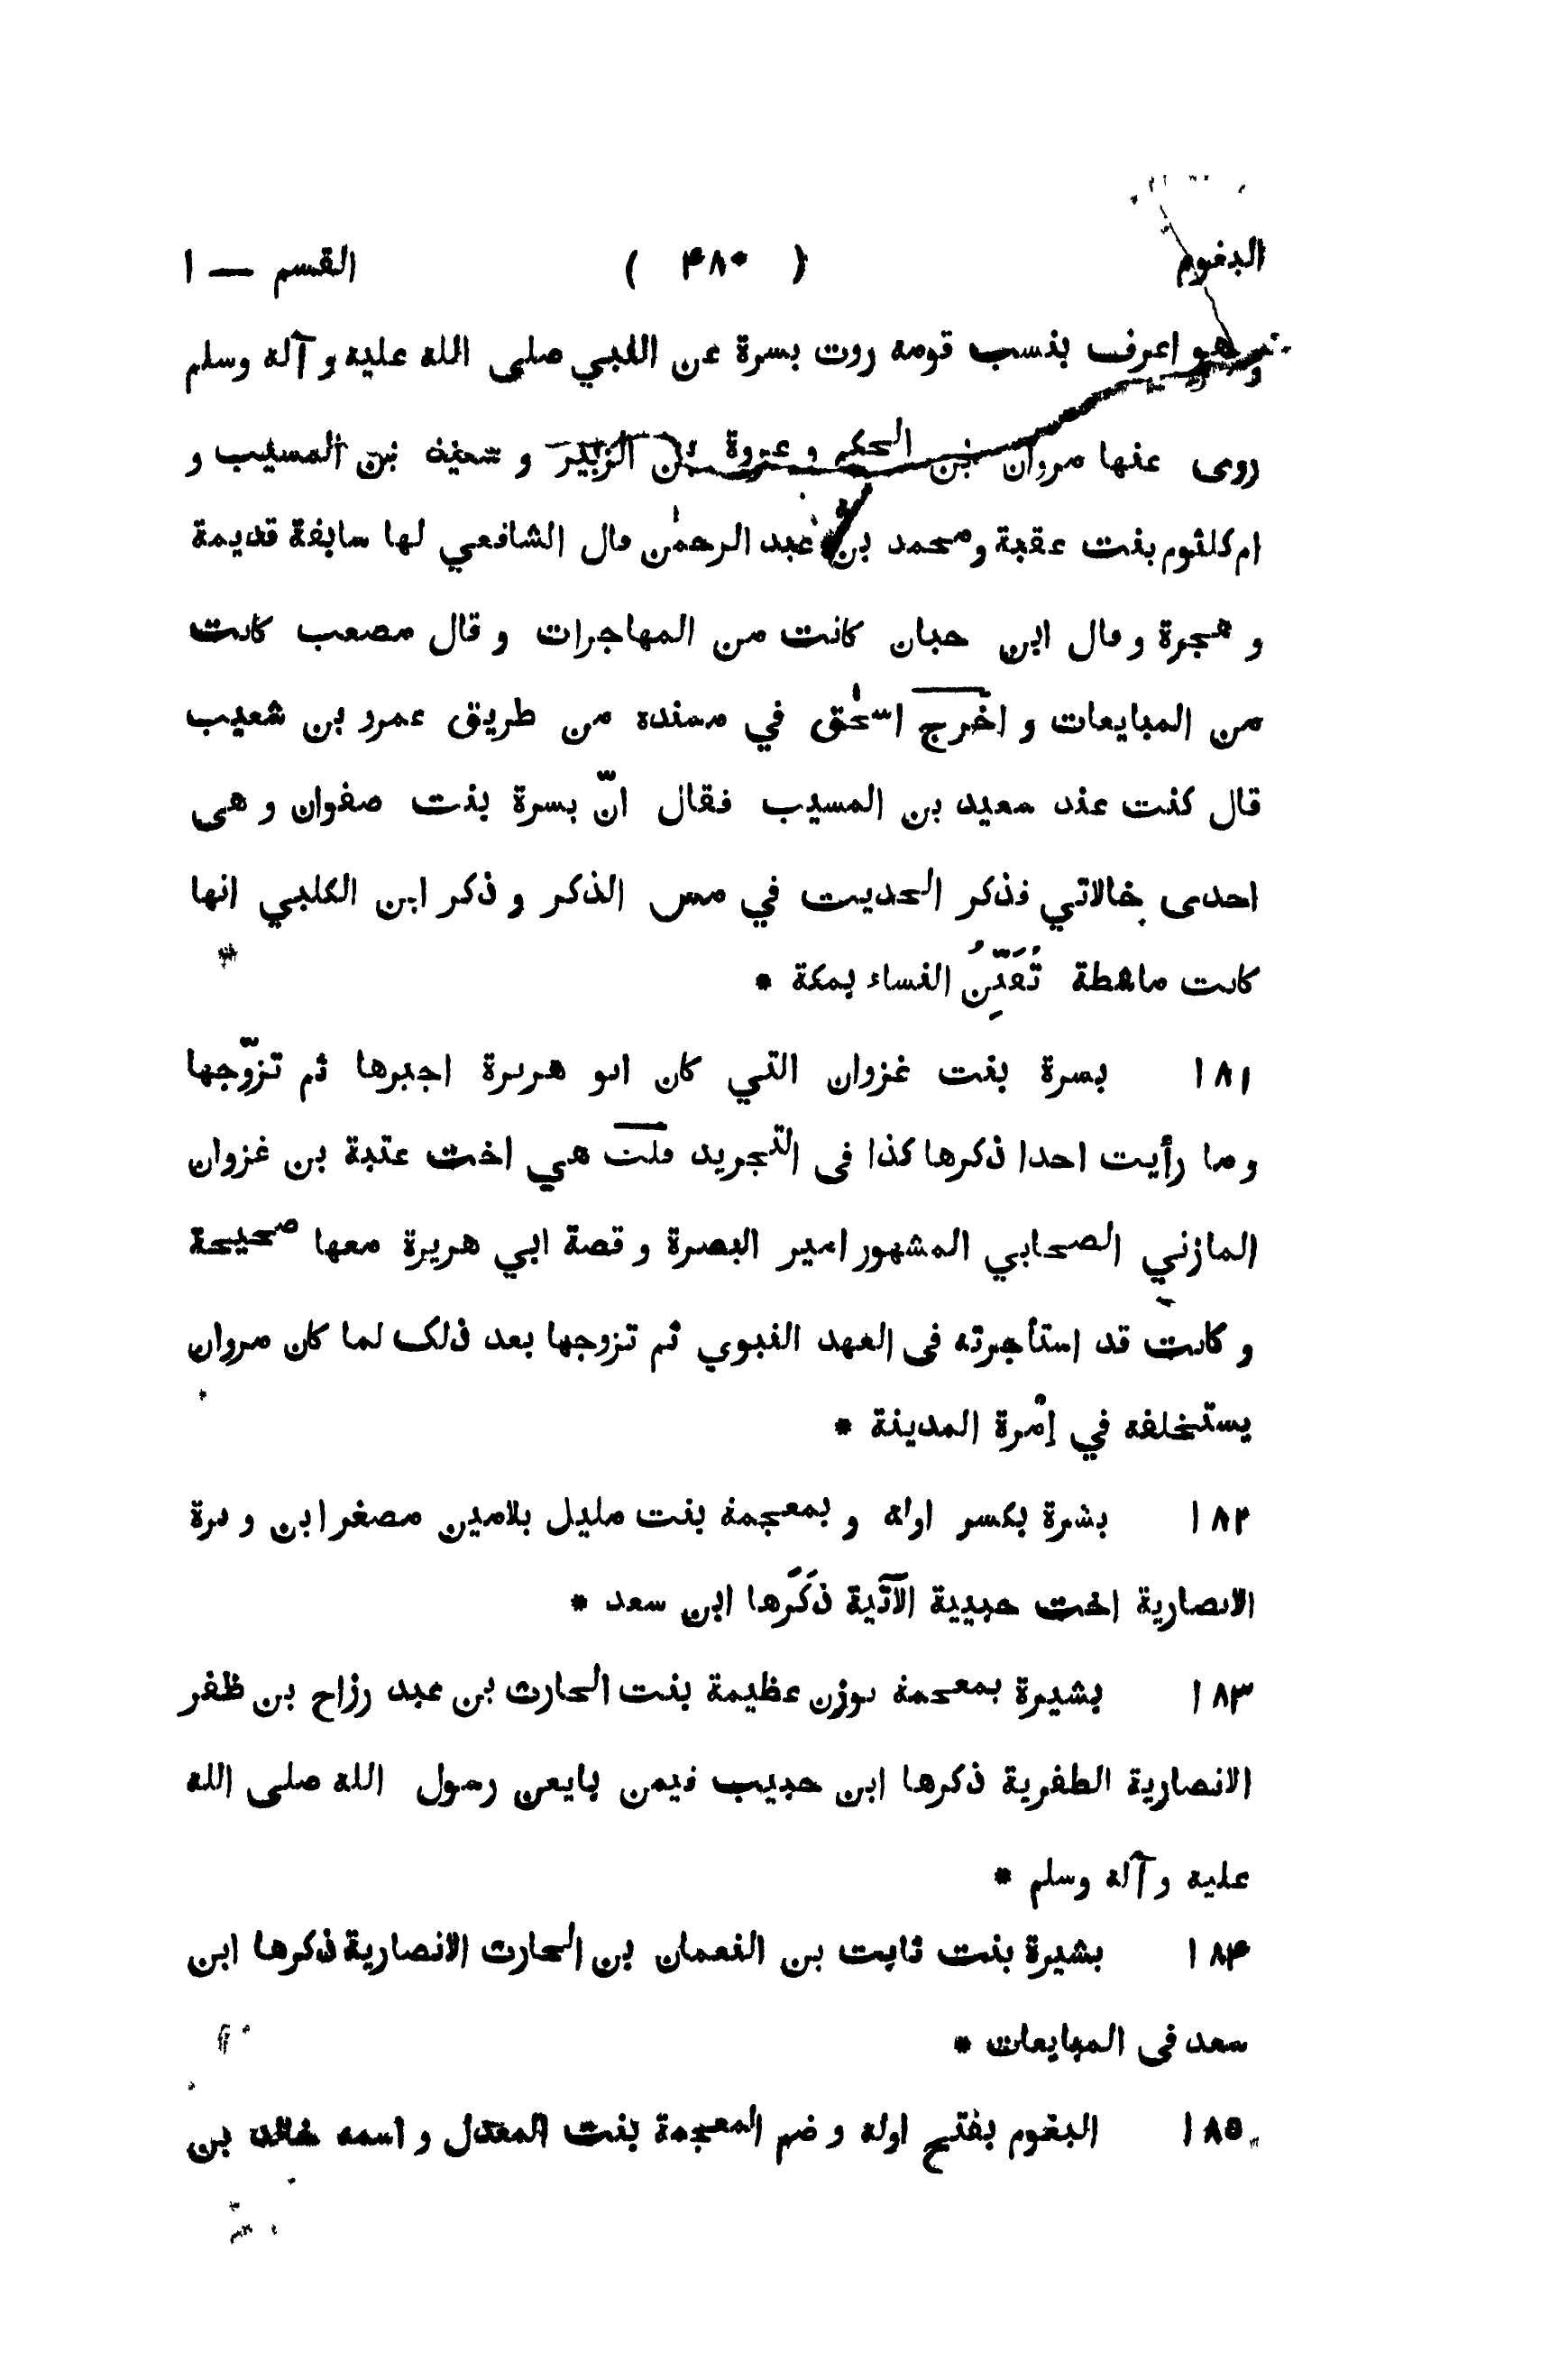 البغوم ( ۴۸۰ ) القسم — ۱
و هو اعرف بنسب قومه روت بسرة عن النبي صلى الله عليه و آله وسلم
روى عنها مروان بن الحكم و عروة بن الزبير و سعيد بن المسيب و
ام كلثوم بنت عقبة و محمد بن عبد الرحمٰن قال الشافعي لها سابقة قديمة
و هجرة و قال ابن حبان كانت من المهاجرات و قال مصعب كانت
من المبايعات و اخرج اسحٰق في مسنده من طريق عمرو بن شعيب
قال كنت عند سعيد بن المسيب فقال انّ بسرة بنت صفوان و هى
احدى خالاتي فذكر الحديث في مس الذكر و ذكر ابن الكلبي انها
كانت ماشطة تُقَيِّنُ النساء بمكة *
۱۸۱ بسرة بنت غزوان التي كان ابو هريرة اجبرها ثم تزوّجها
و ما رأيت احدا ذكرها كذا فى التجريد قلت هي اخت عتبة بن غزوان
المازني الصحابي المشهور امير البصرة و قصة ابي هريرة معها صحيحة
و كانت قد استأجرته فى العهد النبوي ثم تزوجها بعد ذلك لما كان مروان
يستخلفه في إمْرة المدينة *
۱۸۲ بشرة بكسر اوله و بمعجمة بنت مليل بلامين مصغر ابن و برة
الانصارية اخت حبيبة الآتية ذَكَرها ابن سعد *
۱۸۳ بشيرة بمعجمة بوزن عظيمة بنت الحارث بن عبد رزاح بن ظفر
الانصارية الظفرية ذكرها ابن حبيب فيمن بايعن رسول الله صلى الله
عليه و آله وسلم *
۱۸۴ بشيرة بنت ثابت بن النعمان بن الحارث الانصارية ذكرها ابن
سعد فى المبايعات *
۱۸۵ البغوم بفتح اوله و ضم المعجمة بنت المعدل و اسمه خالد بن